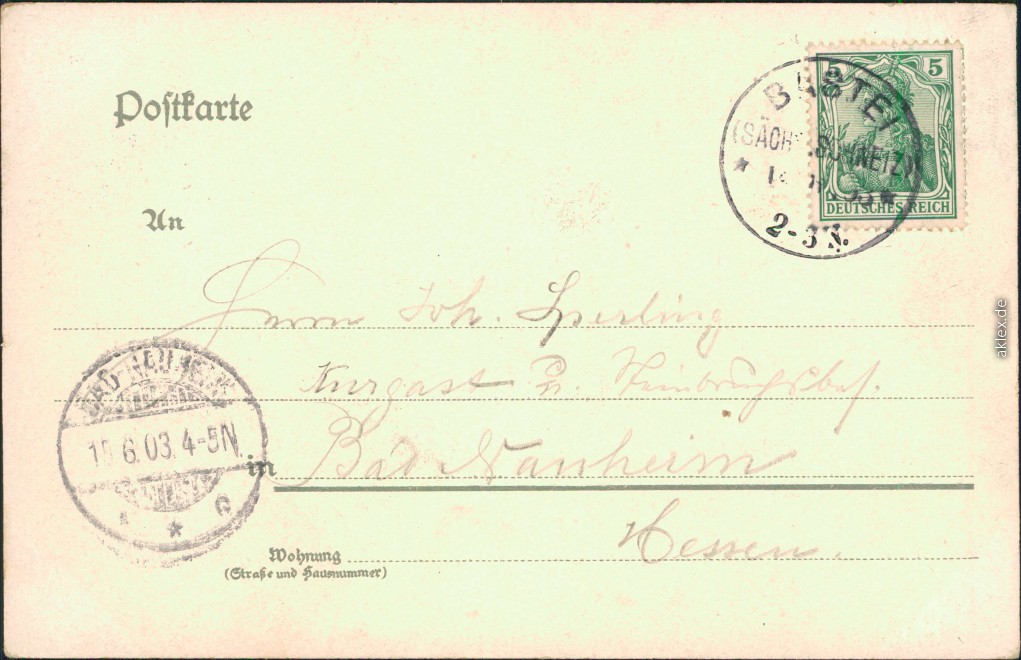 Postkarte
5 5
DEUTSCHES REICH
BASTEI
(SÄCHS. SCHWEIZ)
03
2-3 N.
An
Herrn Joh. Sperling
Kurgast u.
BAD-NAUHEIM
15.6.03. 4-5N.
in Bad Nauheim
Hessen.
Wohnung
(Straße und Hausnummer)
aklex.de